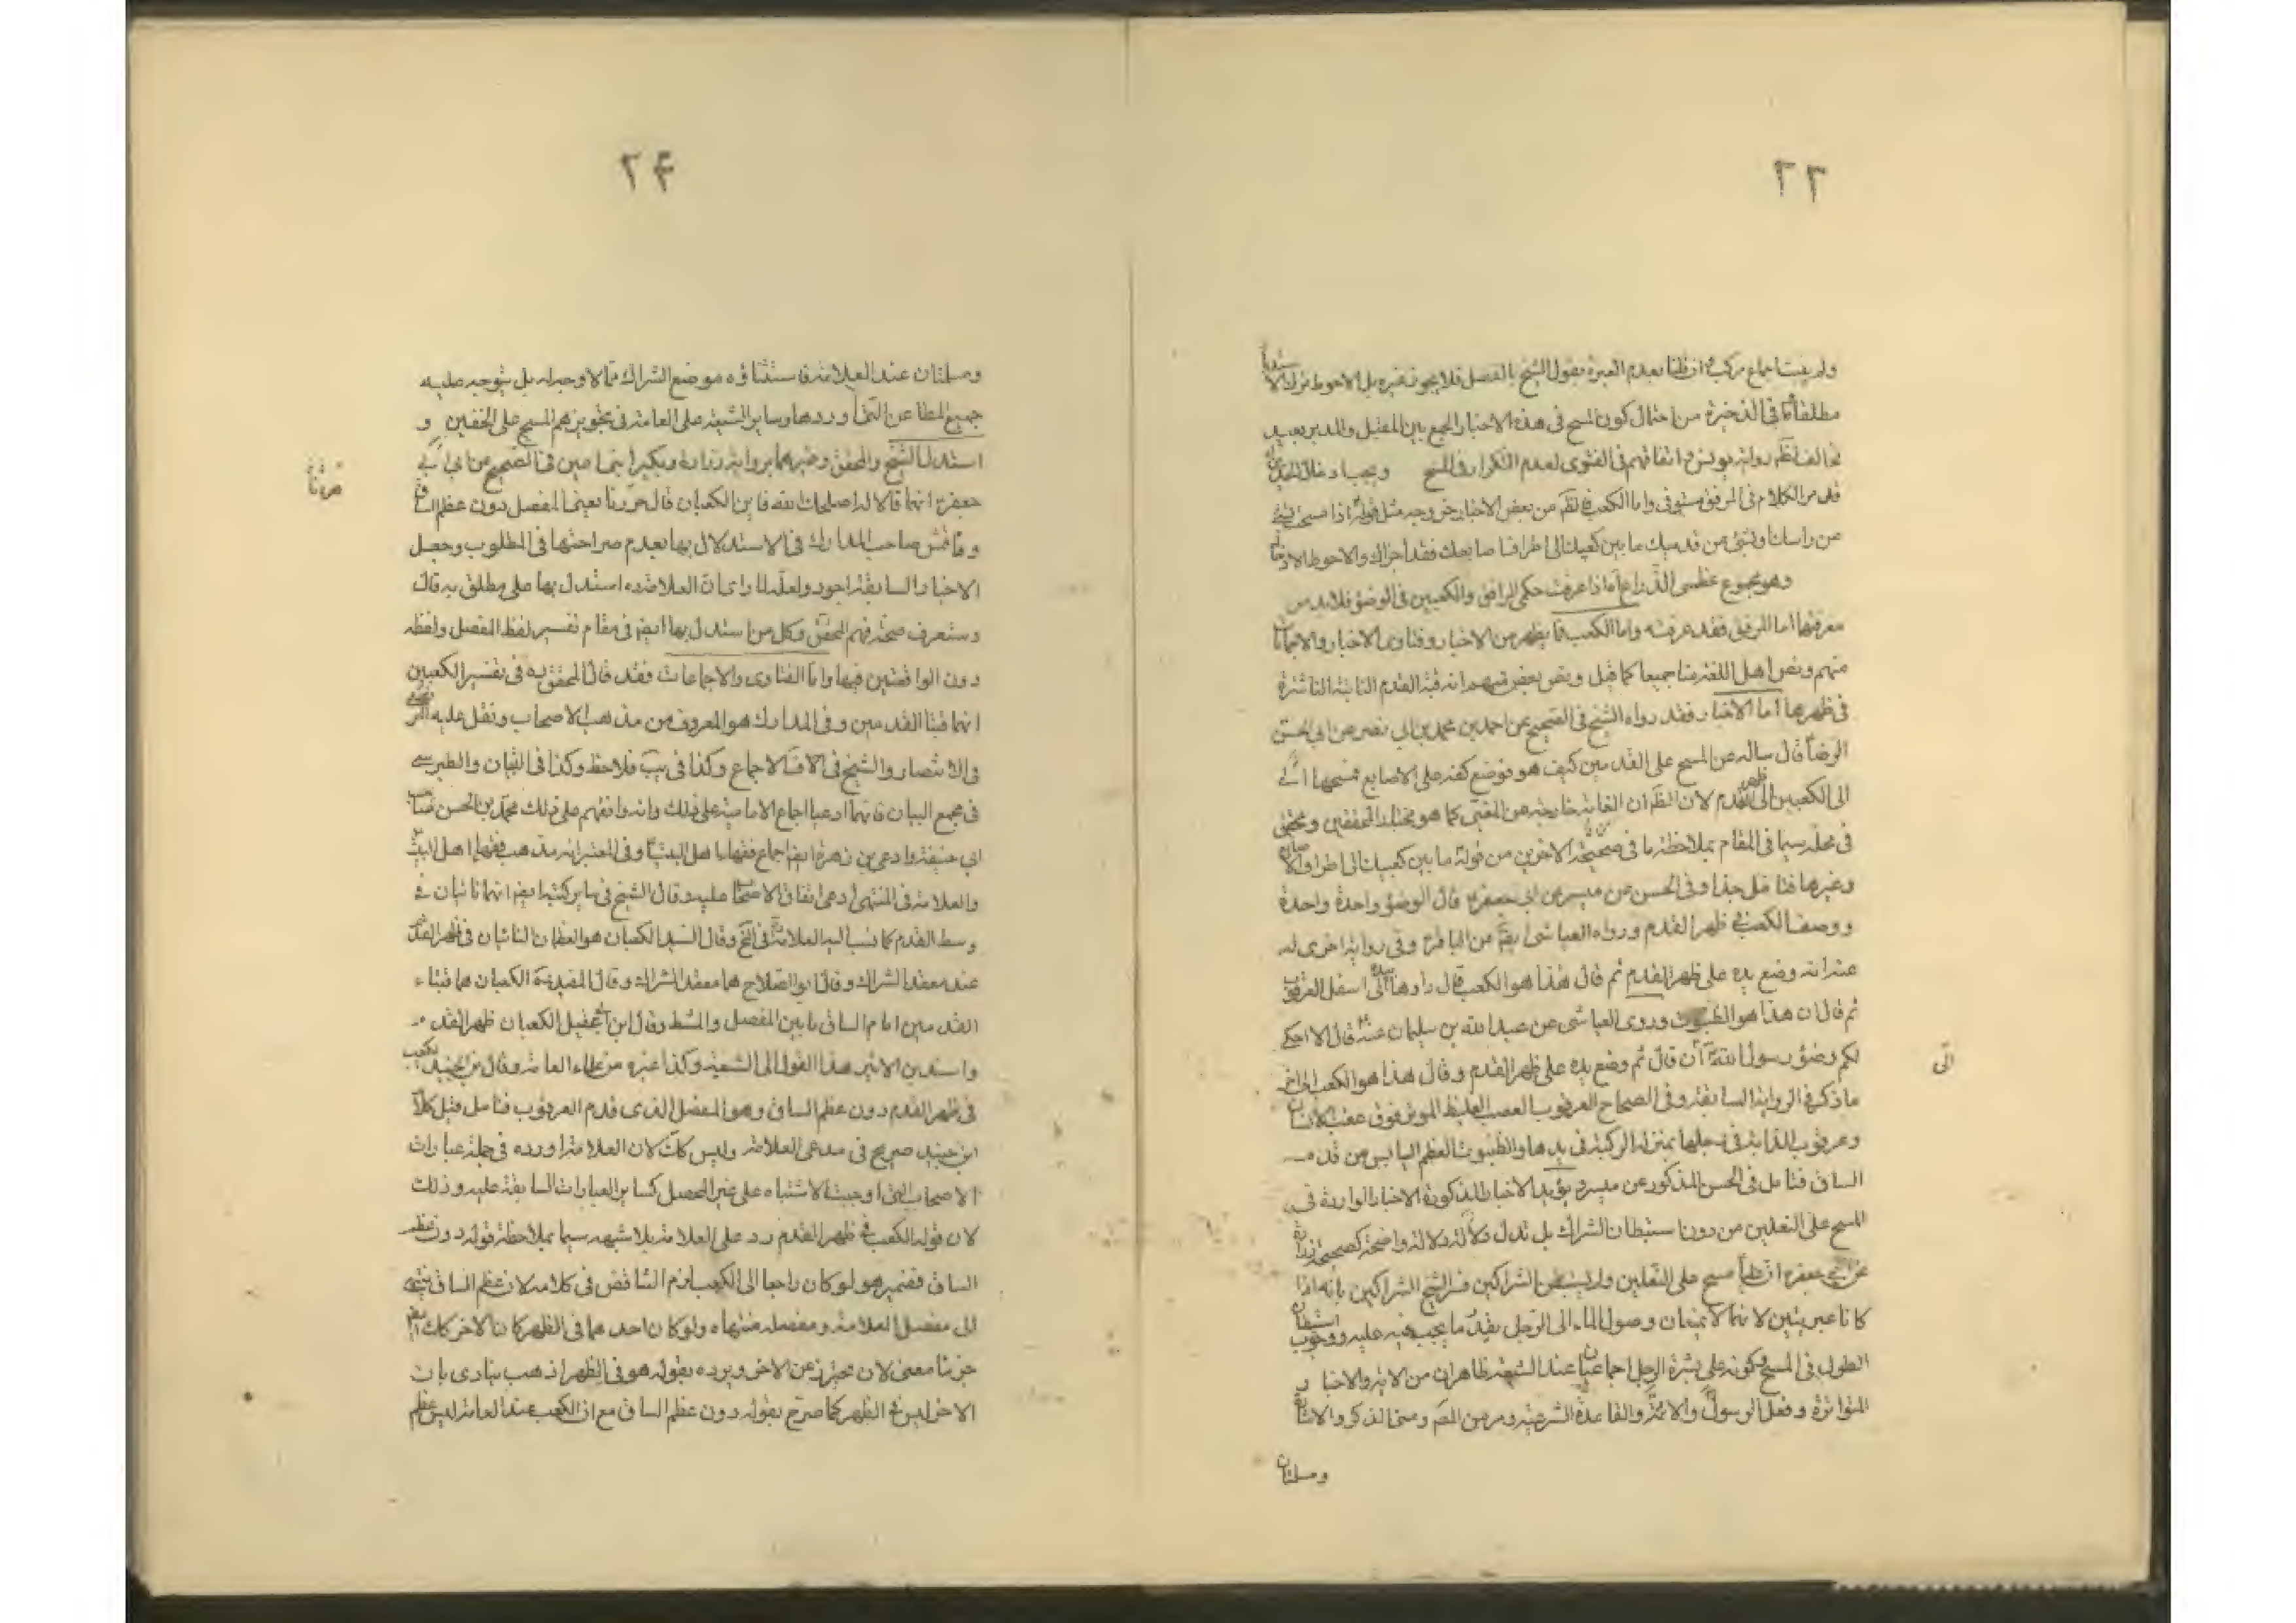 ٢٣
ولم يثبت اجماع مركب فان ظننا بعدم العبرة بقول الشيخ بالفصل فلا يجوز غيره بل الاحوط ترك الا
مطلقا في الذخيرة من احتمال كون المسح في هذه الاخبار الجمع بين المقبل والمدبر بعيد
مخالف لظم رواية يونس واتفاقهم في الفتوى لعدم التكرار في المسح ويجب ادخال
قد مر الكلام في المرفق مستوفى واما الكعب فالظم من بعض الاخبار خروجه مثل قوله اذا مسحت بشيء
من راسك او بشيء من قدميك ما بين كعبيك الى اطراف اصابعك فقد اجزاك والاحوط الادخا
وهو مجموع عظمى الذراع اما اذا عرفت حكم المرافق والكعبين في الوضوء فلا بد من
معرفتهما اما المرفق فقد عرفته واما الكعب فما يظهر من الاخبار وفتاوى الاخبار والاجماعات
منهم ونص اهل اللغة منا جميعا كما قيل ونص بعض منهم انه قبة القدم النابتة الناشزة
في ظهرها اما الاخبار فقد رواه الشيخ في الصحيح عن احمد بن محمد بن ابي نصر عن ابي الحسن
الرضا قال سالته عن المسح على القدمين كيف هو فوضع كفه على الاصابع فمسحها الى
الى الكعبين الى ظهر القدم لان الظم ان الغاية خارجة من المغيى كما هو مختار المحققين ومحقق
في محله سيما في المقام بملاحظة ما في صحيحة الاخوين من قوله ما بين كعبيك الى اطراف الا صابع
وغيرها فتامل جدا وفي الحسن عن ميسر عن ابي جعفر قال الوضوء واحدة واحدة
ووصف الكعب في ظهر القدم ورواه العياشي ايضا عن الباقر وفي رواية اخرى له
عنه انه وضع يده على ظهر القدم ثم قال هذا هو الكعب قال واومأ بيده الى اسفل العرقوب
ثم قال ان هذا هو الظنبوب وروى العياشي عن عبد الله بن سليمان عنه قال الا احكى
لكم وضوء رسول الله الى ان قال ثم وضع يده على ظهر القدم وقال هذا هو الكعب الى اخر
الى
ما ذكر في الرواية السابقة وفي الصحاح العرقوب العصب الغليظ الموتر فوق عقب الانسان
وعرقوب الدابة في رجلها بمنزلة الركبة في يدها والظنبوب العظم اليابس من قدم
الساق فتامل في الحسن المذكور عن ميسر ويؤيد الاخبار المذكورة الاخبار الواردة في
المسح على النعلين من دون استبطان الشراك بل تدل دلالة واضحة كصحيحة زرارة
عن ابي جعفر ان عليا مسح على النعلين ولم يستبطن الشراكين فسر الشيخ الشراكين بانه اذا
كانا عربيتين لانهما لا يمنعان وصول الماء الى الرجل بقدر ما يجب فيه عليه ووجوب استبطان
الطول في المسح وكونه على بشرة الرجل اجماعيان عند الشيعة ظاهران من الاية والاخبار
المتواترة وفعل الرسول والائمة والقاعدة الشرعية ومر من المص ومنا الذكر والاشارة
ومسلمتان
٢۴
ومسلمتان عند العلامة فاستثناؤه موضع الشراك مما لا وجه له بل يتوجه عليه
جميع المطاعن التي اوردها وساير الشيعة على العامة في تجويزهم المسح على الخفين و
استدل الشيخ والمحقق وغيرهما برواية زرارة وبكير ابني اعين في الصحيح عن ابي
جعفر انهما قالا له اصلحك الله فاين الكعبان قال هيهنا يعني المفصل دون عظم الساق
هيهنا
وناقش صاحب المدارك في الاستدلال بها بعدم صراحتها في المطلوب وجعل
الاخبار السابقة اجود ولعله لما راى ان العلامة ره استدل بها على مطلق به قال
وستعرف صحة فهم المحقق وكل من استدل بها ايضا في مقام تفسير لفظ المفصل ولفظ
دون الواقعتين فيها واما الفتاوى والاجماعات فقد قال المحقق ره في تفسير الكعبين
انهما قبتا القدمين وفي المدارك هو المعروف من مذهب الاصحاب ونقل عليه المرتضى
في الانتصار والشيخ في الخلاف الاجماع وكذا في يب فلاحظ وكذا في التبيان والطبرسي
في مجمع البيان فانهما ادعيا اجماع الامامية على ذلك وانه وافقهم على ذلك محمد بن الحسن صاحب
ابي حنيفة وادعى بن زهرة ايضا اجماع فقهاء اهل البيت وفي المعتبر انه مذهب فقهاء اهل البيت
والعلامة في المنتهى ادعى اتفاق الاصحاب عليه وقال الشيخ في ساير كتبه ايضا انهما ناتيان في
وسط القدم كما نسب اليه العلامة في لف وقال السيد الكعبان هو العظمان الناتيان في ظهر القدم
عند معقد الشراك وقال ابو الصلاح هما معقد الشراك وقال المفيد ره الكعبان هما قبتا
القدمين امام الساق ما بين المفصل والمشط وقال ابن ابي عقيل الكعبان ظهر القدم
واسند بن الاثير هذا القول الى الشيعة وكذا غيره من علماء العامة وقال بن الجنيد الكعب
في ظهر القدم دون عظم الساق وهو المفصل الذي قدام العرقوب فتامل قيل كلام
ابن جنيد صريح في مدعى العلامة وليس كك لان العلامة اورده في جملة عبارات
الاصحاب التي اوجبت الاشتباه على غير المحصل كساير العبارات السابقة عليه وذلك
لان قوله الكعب في ظهر القدم رد على العلامة بلا شبهه سيما بملاحظة قوله دون عظم
الساق فضمير هو لو كان راجعا الى الكعب لزم التناقض في كلامه لان عظم الساق ينتهى
الى مفصل العلامة ومفصله منتهاه ولو كان احدهما في الظهر كان الاخر كك ايضا
جزما معنى لان يحترز عن الاخر ويرده بقوله هو في الظهر اذ هب ينادى بان
الاخر ليس في الظهر كما صرح بقوله دون عظم الساق مع ان الكعب عند العامة ليس عظم